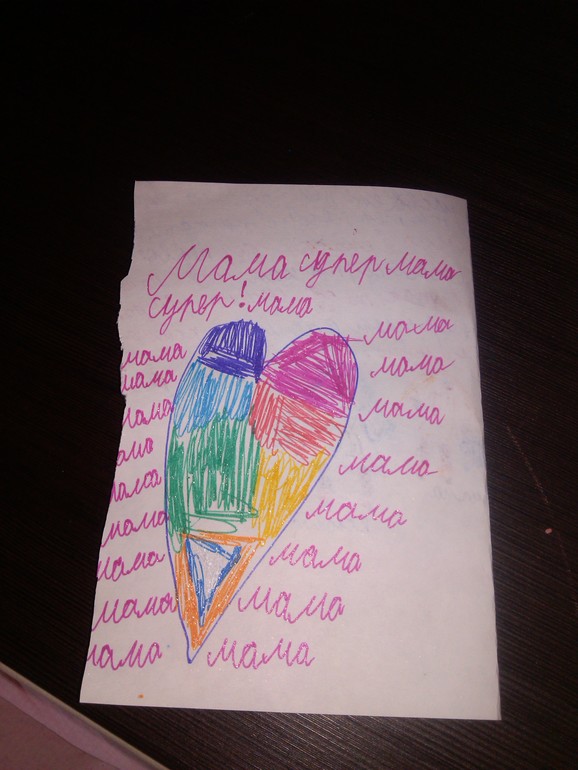 Мама супер мама
супер! мама
мама
мама
мама
ама
мама
мама
мама
мама
мама
мама
мама
мама
мама
мама
мама
мама
мама